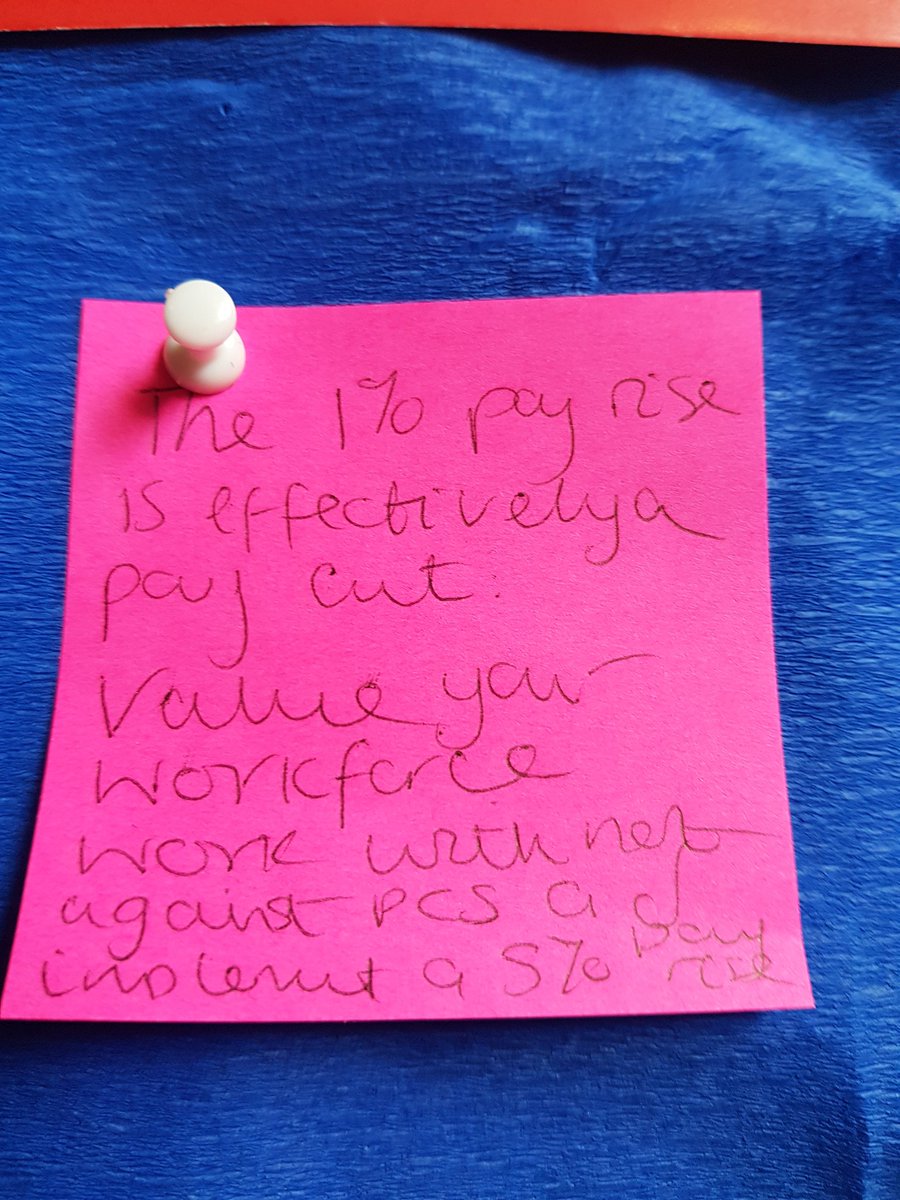 The 1% pay rise
is effectively a
pay cut.
Value your
workforce
work with not
against PCS and
implement a 5% pay
rise